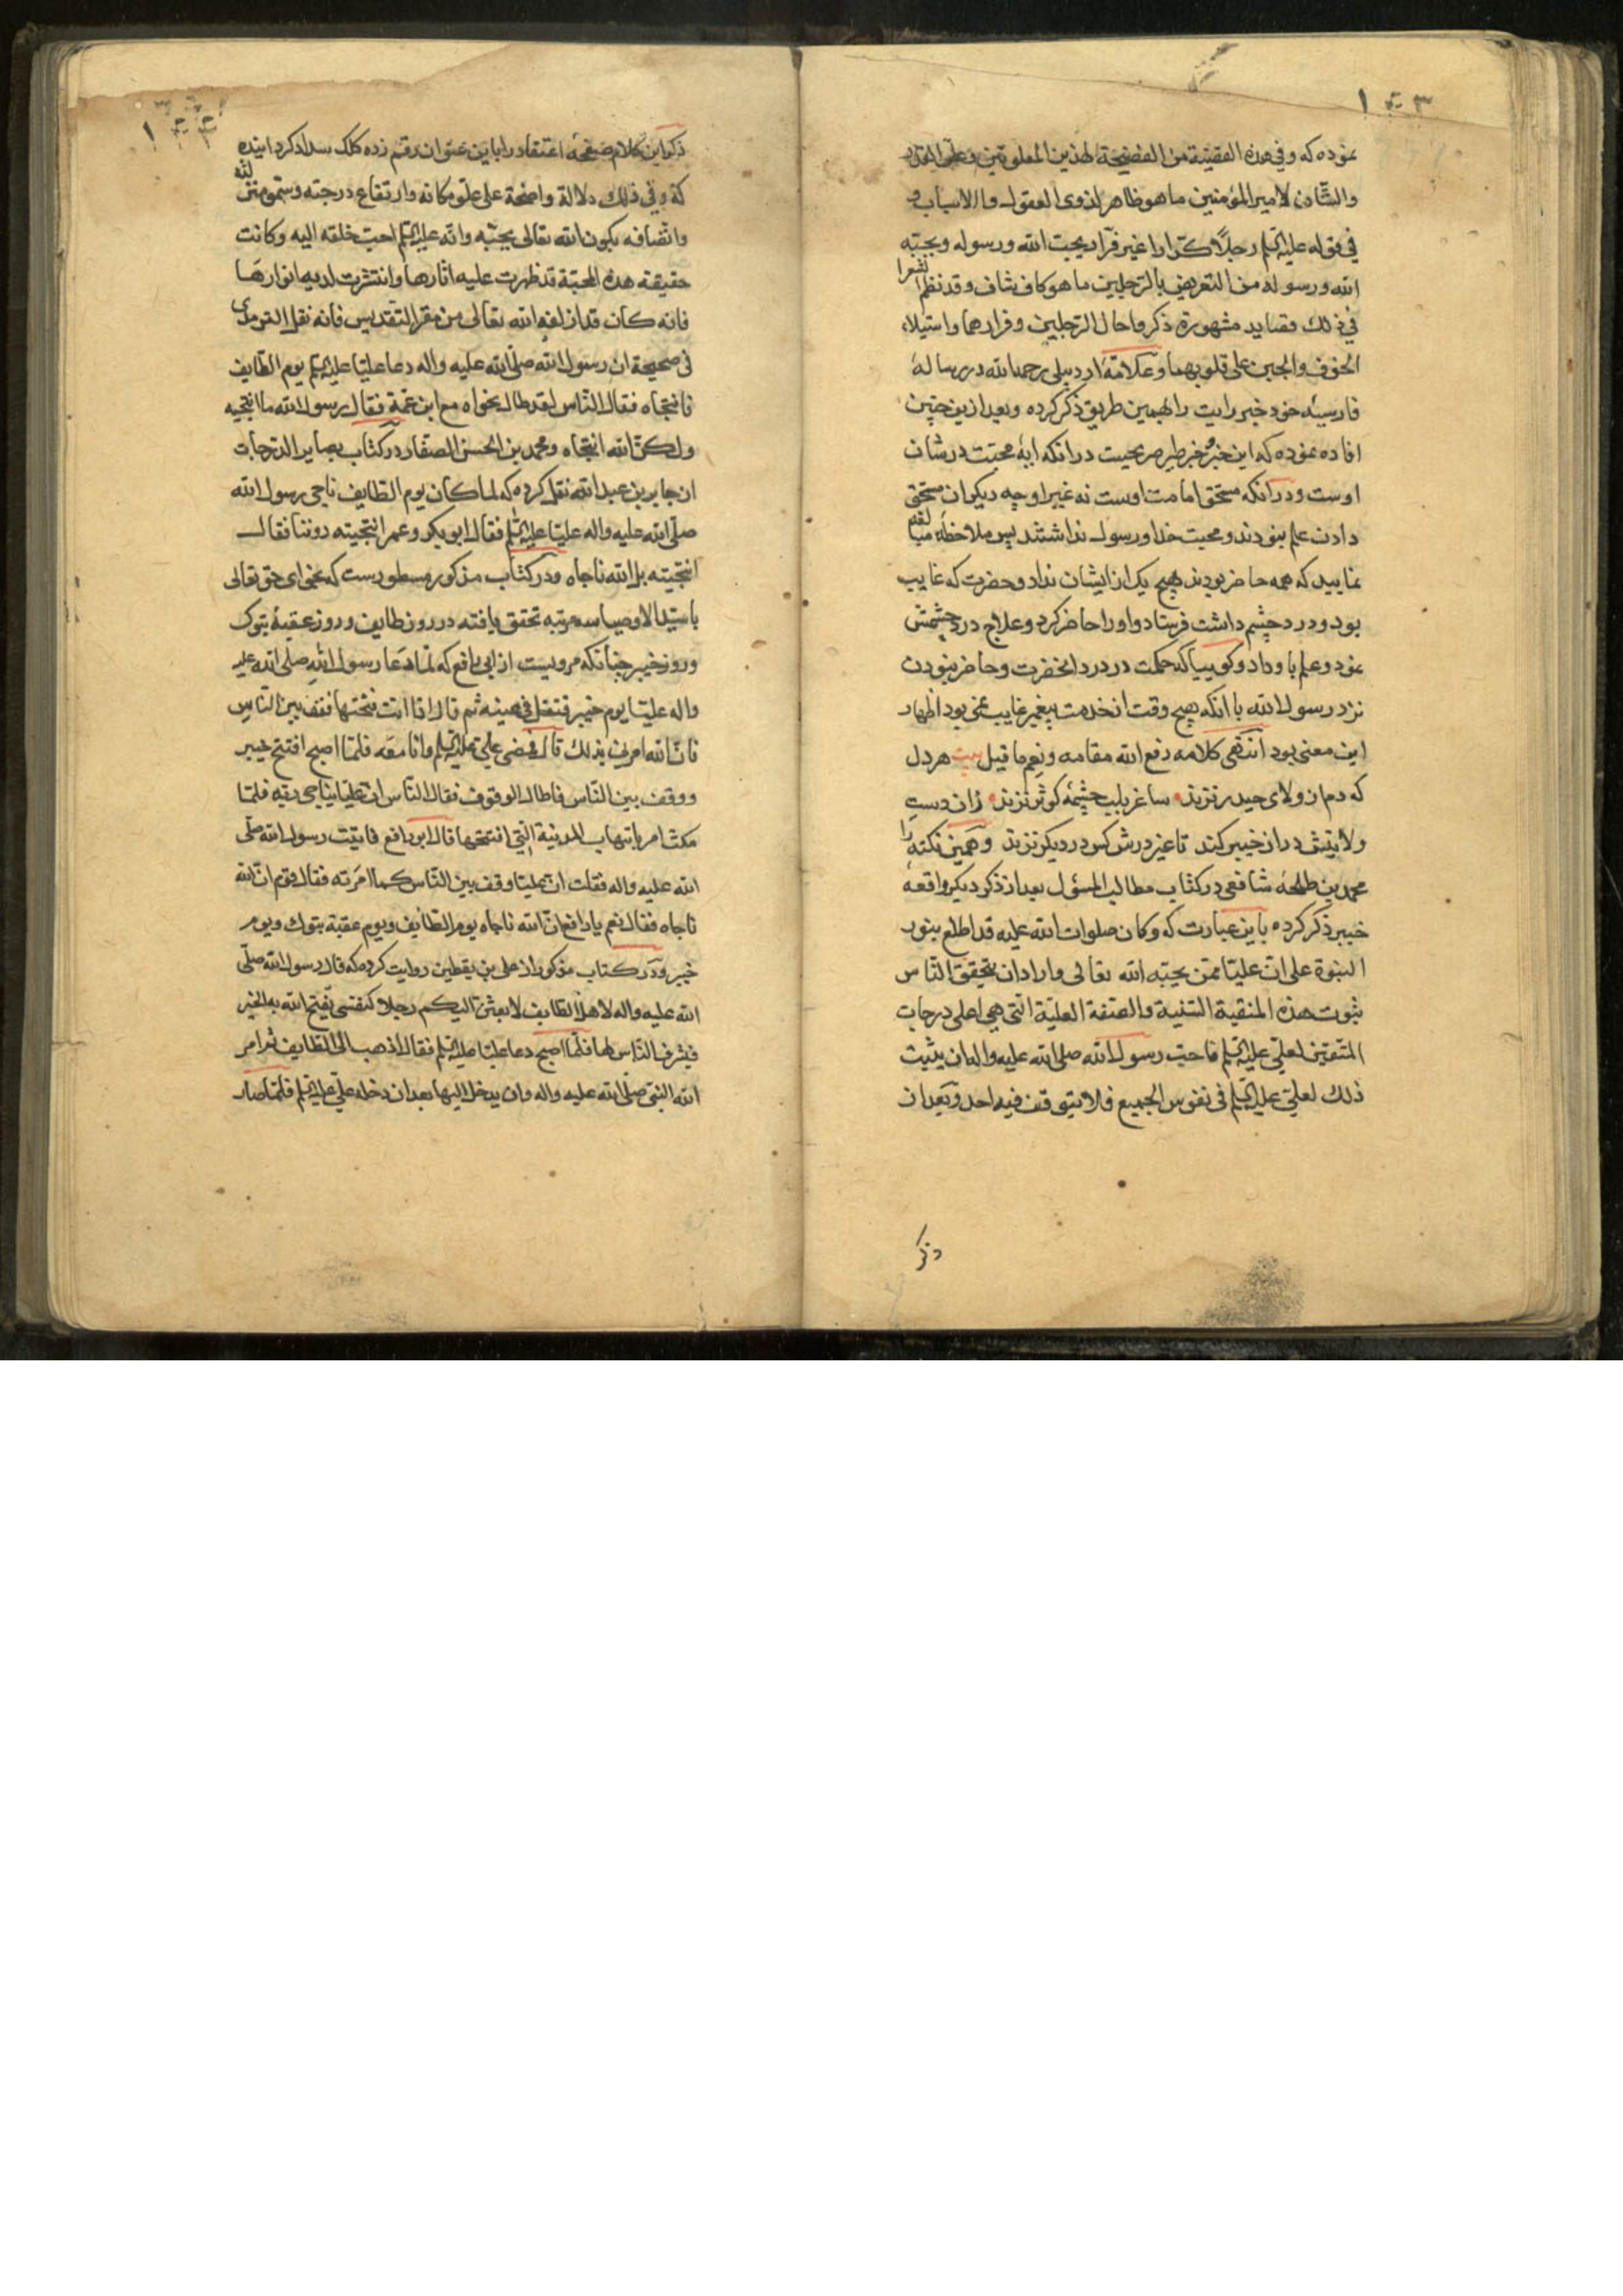 ۱۰۳
نموده که وفی هذه القضیة من الفضیحة لهذین وعلی
والشان لامیر المؤمنین ما هو ظاهر لذوی العقول والالباب و
فی قوله علیه السلم رجلا کرارا غیر فرار یحب الله ورسوله ویحبه
الله ورسوله من التعریض بالرجلین ما هو کاف شاف وقد نظم الشعرا
فی ذلک قصاید مشهورة ذکروا حال الرجلین وفرارهما واستیلاء
الخوف والجبن علی قلوبهما وعلامهٔ اردبیلی رحمه الله در رسالهٔ
فارسیهٔ خود خبر رایت را بهمین طریق ذکر کرده وبعد ازین چنین
افاده نموده که این خبر وخبر طیر صریحست در انکه ایهٔ محبت در شان
اوست ودر انکه مستحق امامت اوست نه غیر او چه دیکران مستحق
دادن علم نبودند ومحبت خدا ورسول نداشتند پس ملاحظهٔ
نمایید که همه حاضر بودند هیچ یک از ایشان نداد وحضرت که غایب
بود ودرد چشم داشت فرستاد واورا حاضر کرد وعلاج درد چشمش
نمود وعلم باو داد وکوییا که حکمت در درد انحضرت وحاضر نبودن
نزد رسول الله با انکه هیچ وقت از خدمت پیغمبر غایب نمی بود اظهار
این معنی بود انتهی کلامه رفع الله مقامه ونعم ما قیل بیت هر دل
که دم از ولای حیدر نزند ساغر بلب چشمهٔ کوثر نزند زان دست
ولایتش در از خیبر کند تا غیر درش کس در دیکر نزند وهمین نکته را
محمد بن طلحهٔ شافعی در کتاب مطالب السؤل بعد از ذکر دیکر واقعهٔ
خیبر ذکر کرده باین عبارت که وکان صلوات الله علیه قد اطلع بنور
النبوة علی ان علیا ممن یحبه الله تعالی واراد ان یتحقق الناس
ثبوت هذه المنقبة السنیة والصفة العلیة التی هی اعلی درجات
المتقین لعلی علیه السلم فاحب رسول الله صلی الله علیه واله ان یثبت
ذلک لعلی علیه السلم فی نفوس الجمیع فلا یتوقف فیه احد وبعد از
ذکر
ذکر این کلام صفحهٔ اعتقاد را باین عنوان رقم زده کلک سداد کردانیده
که وفی ذلک دلالة واضحة علی علو مکانه وارتفاع درجته وسمو منزلته
واتصافه بکون الله تعالی یحبه وانه علیه السلم احب خلقه الیه وکانت
حقیقة هذه المحبة قد ظهرت علیه اثارها وانتشرت لدیه انوارها
فانه کان قد ازلفه الله تعالی من مقر التقدیس فانه نقل الترمذی
فی صحیحه ان رسول الله صلی الله علیه واله دعا علیا علیه السلم یوم الطایف
فانتجاه فقال الناس لقد طال نجواه مع ابن عمه فقال رسول الله ما انتجیته
ولکن الله انتجاه ومحمد بن الحسن الصفار در کتاب بصایر الدرجات
از جابر بن عبد الله نقل کرده که لما کان یوم الطایف ناجی رسول الله
صلی الله علیه واله علیا علیه السلم فقال ابو بکر وعمر انتجیته دوننا فقال
انتجیته بل الله ناجاه ودر کتاب مذکور مسطورست که نجوای حق تعالی
با سید الاوصیا سه مرتبه تحقق یافته در روز طایف وروز عقبهٔ تبوک
وروز خیبر چنانکه مرویست از ابی رافع که لما دعا رسول الله صلی الله علیه
واله علیا یوم خیبر فتفل فی عینیه ثم قال اذا انت فتحتها فقف بین الناس
فان الله امرنی بذلک قال فمضی علی علیه السلم وانا معه فلما اصبح افتتح خیبر
ووقف بین الناس فاطال الوقوف فقال الناس ان علیا یناجی ربه فلما
مکث امر بانتهاب المدینة التی افتتحها قال ابو رافع فاتیت رسول الله صلی
الله علیه واله فقلت ان علیا وقف بین الناس کما امرته فقال قوم ان الله
ناجاه فقال نعم یا رافع ان الله ناجاه یوم الطایف ویوم عقبة تبوک ویوم
خیبر ودر کتاب مذکور از علی بن یقطین روایت کرده که قال رسول الله صلی
الله علیه واله لاهل الطایف لابعثن الیکم رجلا کنفسی یفتح الله به الخیبر
فیشرف الناس لها فلما اصبح دعا علیا علیه السلم فقال اذهب الی الطایف ثم امر
الله النبی صلی الله علیه واله وان یدخل الیها بعد ان دخله علی علیه السلم فلما صار